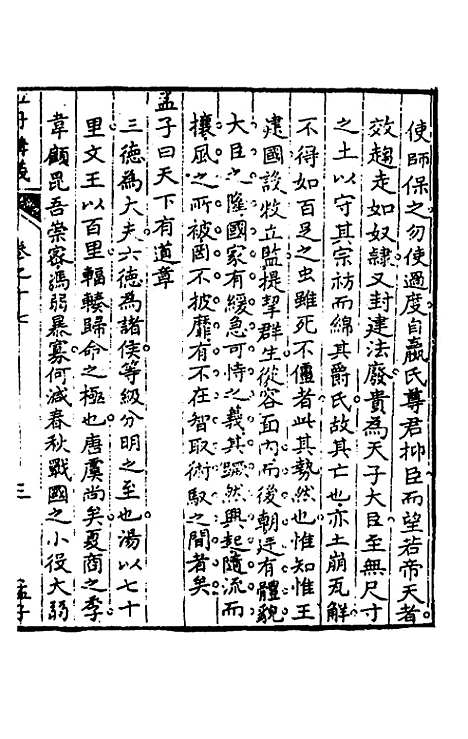 使師保之勿使過度自嬴氏尊君抑臣而望若帝天者
效趨走如奴隸又封建法廢貴為天子大臣至無尺寸
之土以守其宗祊而綿其爵氏故其亡也亦土崩瓦解
不得如百足之虫雖死不僵者此其勢然也惟知惟王
建國設牧立監提挈群生從容面內而後朝廷有體貌
大臣之隆國家有緩急可恃之義其蹶然興起隨流而
攘風之所被罔不披靡有不在智取術馭之間者矣
孟子曰天下有道章
三德為大夫六德為諸侯等級分明之至也湯以七十
里文王以百里輻輳歸命之極也唐虞尚矣夏商之季
韋顧毘吾崇密馮弱暴寡何減春秋戰國之小役大弱
卷之十七
三
孟子